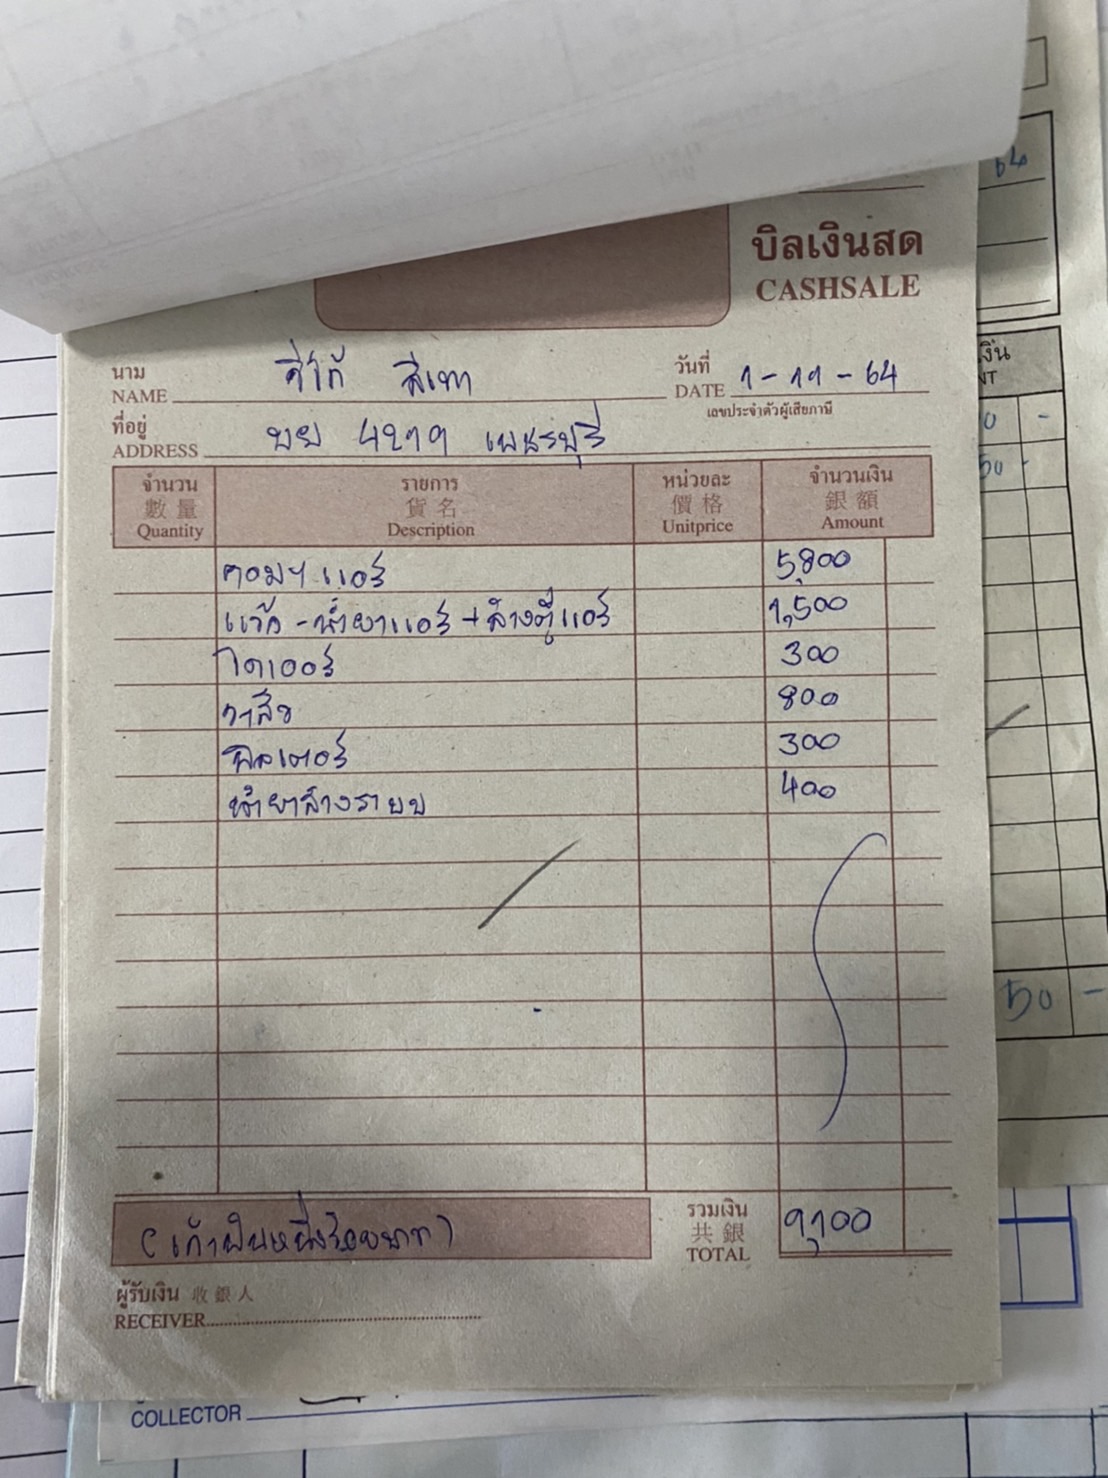 64
บิลเงินสด
CASHSALE
นาม
NAME วีโก้ สีเทา
วันที่
DATE 1-11-64
เลขประจำตัวผู้เสียภาษี
ที่อยู่
ADDRESS บย 4279 เพชรบุรี
จำนวน รายการ หน่วยละ จำนวนเงิน
數量 貨名 價格 銀額
Quantity Description Unitprice Amount
คอมฯ แอร์ 5,800
แว๊ค - น้ำยาแอร์ + ล้างตู้แอร์ 1,500
ไดเออร์ 300
วาล์ว 800
ฟิลเตอร์ 300
น้ำยาล้างระบบ 400
(เก้าพันหนึ่งร้อยบาท)
รวมเงิน
共銀
TOTAL 9,100
ผู้รับเงิน 收銀人
RECEIVER
COLLECTOR
50 -